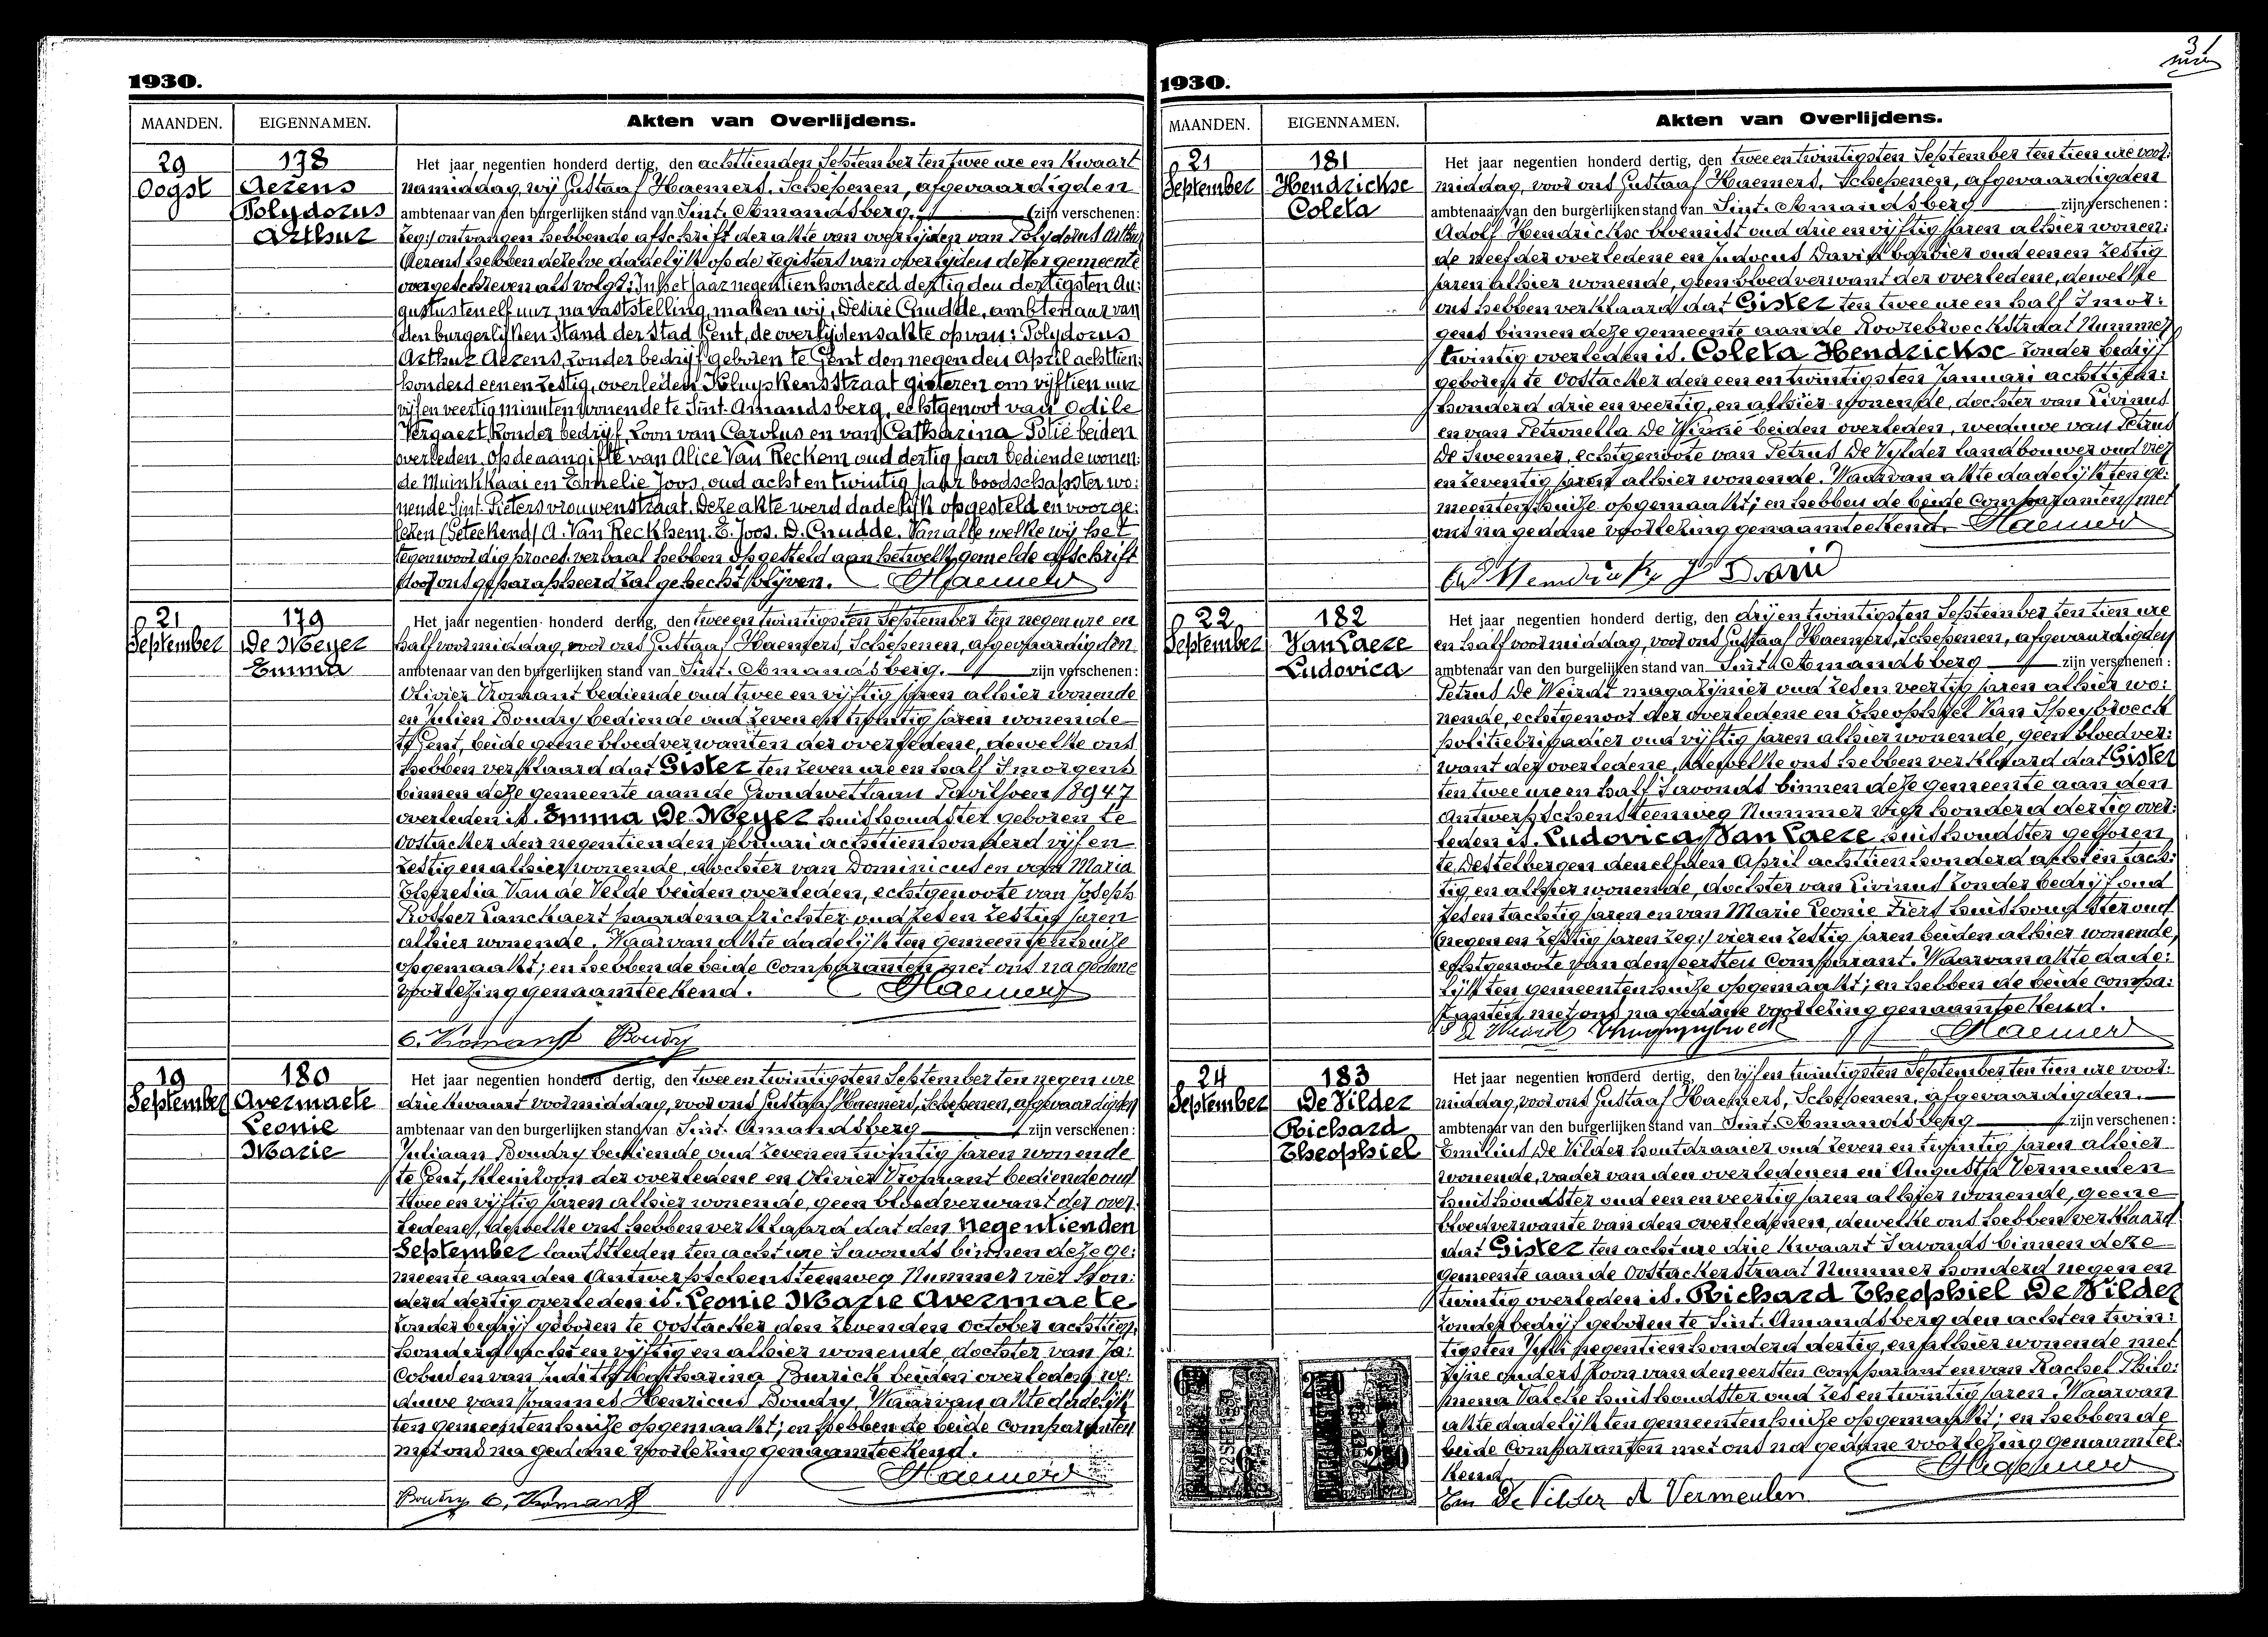 1930.
MAANDEN. EIGENNAMEN. Akten van Overlijdens.
29 Oogst
178
Aerens
Polydorus
Arthur
Het jaar negentien honderd dertig, den achttienden September ten twee ure en kwaart
namiddag, wij Gustaaf Haemers, Schepenen, afgevaardigden
ambtenaar van den burgerlijken stand van Sint-Amandsberg. (zijn verschenen:
zeg:) ontvangen hebbende afschrift der akte van overlijden van Polydorus Arthur
Aerens hebben dezelve dadelijk op de registers van overlijden dezer gemeente
overgeschreven als volgt: In het jaar negentienhonderd dertig den dertigsten Au:
gustus ten elf uur, na vaststelling, maken wij, Désiré Cnudde, ambtenaar van
den burgerlijken Stand der Stad Gent, de overlijdensakte op van: Polydorus
Arthur Aerens, zonder bedrijf geboren te Gent den negenden April achttien:
honderd eenenzestig, overleden Kluyskensstraat gisteren om vijftien uur
vijfenveertig minuten wonende te Sint-Amandsberg, echtgenoot van Odile
Vergaert, zonder bedrijf, zoon van Carolus en van Catharina Potié beiden
overleden. Op de aangifte van Alice Van Reckem oud dertig jaar bediende wonen:
de Muinkkaai en Emelie Joos, oud achtentwintig jaar boodschapster wo:
nende Sint-Pietersvrouwenstraat. Deze akte werd dadelijk opgesteld en voorge:
lezen (Geteekend) A. Van Reckhem. E. Joos. D. Cnudde. Van alle welke wij het
tegenwoordig proces verbaal hebben opgesteld aan hetwelk gemelde afschrift
door ons geparapheerd zal gehecht blijven. Haemers
21 September
179
De Meyer
Emma
Het jaar negentien honderd dertig, den tweeentwintigsten September ten negen ure en
half voormiddag, voor ons Gustaaf Haemers, Schepenen, afgevaardigden
ambtenaar van den burgerlijken stand van Sint-Amandsberg. zijn verschenen:
Olivier Vromant bediende oud tweeenvijftig jaren alhier wonende
en Julien Boudry bediende oud zevenentwintig jaren wonende
te Gent, beide geene bloedverwanten der overledene, dewelke ons
hebben verklaard dat Gister ten zeven ure en half 's morgens
binnen deze gemeente aan de Grondwetlaan Paviljoen 18947
overleden is. Emma De Meyer huishoudster geboren te
Oostacker den negentienden februari achttienhonderd vijfen
zestig en alhier wonende, dochter van Dominicus en van Maria
Theresia Van de Velde beiden overleden, echtgenoote van Joseph
Rosseer Lanckaert paardenafrichter oud zesenzestig jaren
alhier wonende. Waarvan akte dadelijk ten gemeentenhuize
opgemaakt; en hebben de beide Comparanten met ons na gedane
voorlezing genaamteekend. Haemers
O. Vromant Boudry
19 September
180
Avermaete
Leonie
Marie
Het jaar negentien honderd dertig, den tweeentwintigsten September ten negen ure
drie kwaart voormiddag, voor ons Gustaaf Haemers, Schepenen, afgevaardigden
ambtenaar van den burgerlijken stand van Sint-Amandsberg zijn verschenen:
Juliaan Boudry bediende, oud zevenentwintig jaren wonende
te Gent, kleinzoon der overledene en Olivier Vromant bediende oud
tweeenvijftig jaren alhier wonende, geen bloedverwant der over:
ledene, dewelke ons hebben verklaard dat den negentienden
September laatstleden ten acht ure 's avonds binnen deze ge:
meente aan den Antwerpschensteenweg Nummer vier hon:
derd dertig overleden is. Leonie Marie Avermaete
zonder bedrijf geboren te Oostacker den zevenden October achttien:
honderd achtenvijftig en alhier wonende, dochter van Ja:
cobus en van Judith Katharina Burrick beiden overleden, we:
duwe van Joannes Henricus Boudry. Waarvan akte dadelijk
ten gemeentenhuize opgemaakt; en hebben de beide Comparanten
met ons na gedane voorlezing genaamteekend.
Haemers
Boudry O. Vromant
31
1930.
MAANDEN. EIGENNAMEN. Akten van Overlijdens.
21 September
181
Hendrickse
Coleta
Het jaar negentien honderd dertig, den tweeentwintigsten September ten tien ure voor:
middag, voor ons Gustaaf Haemers, Schepenen, afgevaardigden
ambtenaar van den burgerlijken stand van Sint-Amandsberg zijn verschenen:
Adolf Hendrickse bloemist oud drieenvijftig jaren alhier wonen:
de neef der overledene en Judocus David barbier oud eenenzestig
jaren alhier wonende, geen bloedverwant der overledene, dewelke
ons hebben verklaard dat Gister ten twee ure en half 's mor:
gens binnen deze gemeente aan de Roorebroeckstraat Nummer
twintig overleden is. Coleta Hendrickse zonder bedrijf
geboren te Oostacker den eenentwintigsten Januari achttien:
honderd drieenveertig, en alhier wonende, dochter van Livinus
en van Petronella De Winne beiden overleden, weduwe van Petrus
De Sweemer, echtgenoote van Petrus De Vylder landbouwer oud vier
en zeventig jaren alhier wonende. Waarvan akte dadelijk ten ge:
meentenhuize opgemaakt; en hebben de beide Comparanten met
ons na gedane voorlezing genaamteekend. Haemers
Ad Hendrickx J David
22 September
182
Van Laere
Ludovica
Het jaar negentien honderd dertig, den drijentwintigsten September ten tien ure
en half voormiddag, voor ons Gustaaf Haemers, Schepenen, afgevaardigden
ambtenaar van den burgerlijken stand van Sint-Amandsberg zijn verschenen:
Petrus De Weirdt magazijnier oud zesenveertig jaren alhier wo:
nende, echtgenoot der overledene en Theophiel Van Speybroeck
politiebrigadier oud vijftig jaren alhier wonende, geen bloedver:
want der overledene, dewelke ons hebben verklaard dat Gister
ten twee ure en half 's avonds binnen deze gemeente aan den
Antwerpschensteenweg Nummer vier honderd dertig over:
leden is. Ludovica Van Laere huishoudster geboren
te Destelbergen den elfden April achttienhonderd achtentach:
tig en alhier wonende, dochter van Livinus zonder bedrijf oud
zesentachtig jaren en van Marie Leonie Fiers huishoudster oud
(negenenzestig jaren zeg:) vierenzestig jaren beiden alhier wonende,
echtgenoote van den eersten Comparant. Waarvan akte dade:
lijk ten gemeentenhuize opgemaakt; en hebben de beide compa:
ranten met ons na gedane voorlezing genaamteekend.
P De Weirdt Haemers
24 September
183
De Vilder
Richard
Theophiel
Het jaar negentien honderd dertig, den vijfentwintigsten September ten tien ure voor:
middag, voor ons Gustaaf Haemers, Schepenen, afgevaardigden.
ambtenaar van den burgerlijken stand van Sint-Amandsberg zijn verschenen:
Emilius De Vilder houtdraaier oud zevenentwintig jaren alhier
wonende, vader van den overledenen en Augusta Vermeulen
huishoudster oud eenenveertig jaren alhier wonende, geene
bloedverwante van den overledenen, dewelke ons hebben verklaard
dat Gister ten acht ure drie kwaart 's avonds binnen deze
gemeente aan de Oostackerstraat Nummer honderd negenen
twintig overleden is. Richard Theophiel De Vilder
zonder bedrijf geboren te Sint-Amandsberg den achtentwin:
tigsten Juli negentienhonderd dertig, en alhier wonende met
zijne ouders, zoon van den eersten Comparant en van Rachel Philo:
mena Valcke huishoudster oud zesentwintig jaren. Waarvan
akte dadelijk ten gemeentenhuize opgemaakt; en hebben de
beide Comparanten met ons na gedane voorlezing genaamtee:
kend. Haemers
Em De Vilder A Vermeulen